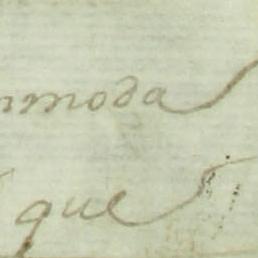 nmoda
que